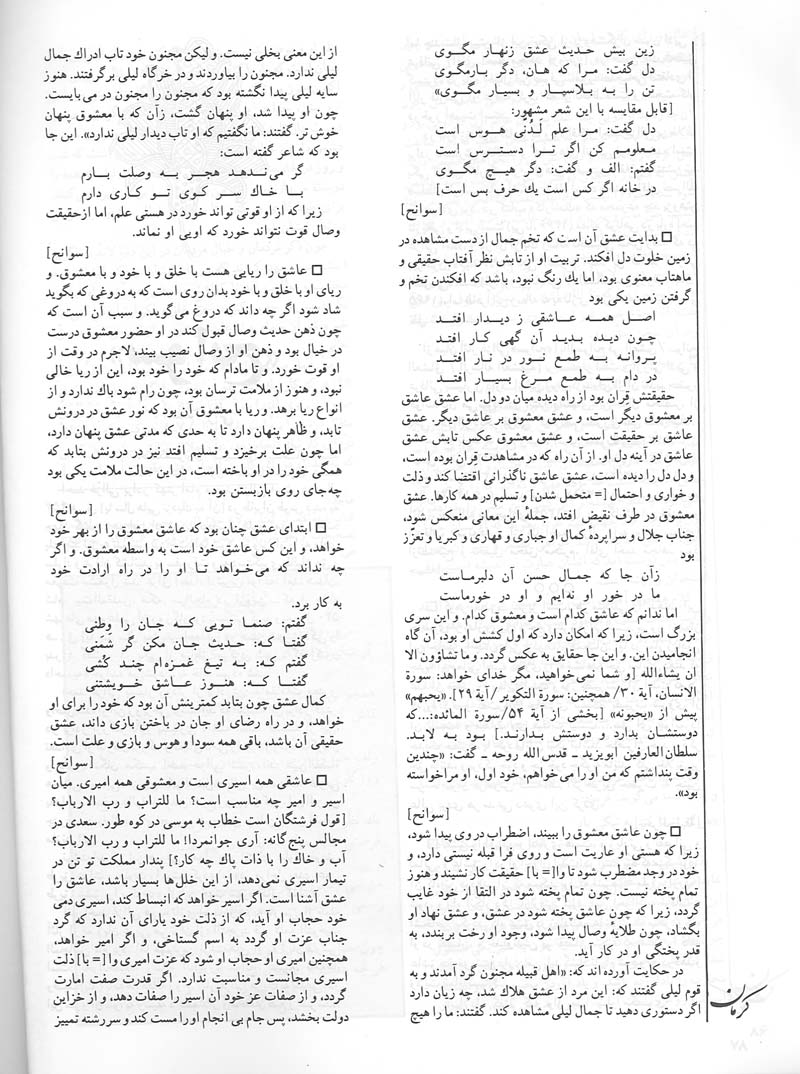 زین بیش حدیث عشق زنهار مگوی
دل گفت: مرا که هان، دگر بارمگوی
تن را به بلاسپار و بسیار مگوی»
[قابل مقایسه با این شعر مشهور:
دل گفت: مرا علم لَدُنّی هوس است
معلومم کن اگر ترا دسترس است
گفتم: الف و گفت: دگر هیچ مگوی
در خانه اگر کس است یك حرف بس است]
[سوانح]
□ بدایت عشق آن است که تخم جمال از دست مشاهده در
زمین خلوت دل افکند. تربیت او از تابش نظر آفتاب حقیقی و
ماهتاب معنوی بود، اما یك رنگ نبود، باشد که افکندن تخم و
گرفتن زمین یکی بود
اصل همه عاشقی ز دیدار افتد
چون دیده بدید آن گهی کار افتد
پروانه به طمع نور در نار افتد
در دام به طمع مرغ بسیار افتد
حقیقتش قِران بود از راه دیده میان دو دل. اما عشق عاشق
بر معشوق دیگر است، و عشق معشوق بر عاشق دیگر. عشق
عاشق بر حقیقت است، و عشق معشوق عکس تابش عشق
عاشق در آینه دل او. از آن راه که در مشاهدت قِران بوده است،
و دل دل را دیده است، عشق عاشق ناگذرانی اقتضا کند و ذلت
و خواری و احتمال [= متحمل شدن] و تسلیم در همه کارها. عشق
معشوق در طرف نقیض افتد، جملۀ این معانی منعکس شود،
جناب جلال و سراپردۀ کمال او جباری و قهاری و کبریا و تعزّز
بود
زآن جا که جمال حسن آن دلبرماست
ما در خور او نه‌ایم و او در خورماست
اما ندانم که عاشق کدام است و معشوق کدام. و این سری
بزرگ است، زیرا که امکان دارد که اول کشش او بود، آن گاه
انجامیدن این. و این جا حقایق به عکس گردد. و ما تشاؤون الا
ان یشاءالله [و شما نمی‌خواهید، مگر خدای خواهد: سورة
الانسان، آیة ۳۰/ همچنین: سورة التکویر/ آیة ۲۹]. «یحبهم»
پیش از «یحبونه» [بخشی از آیة ۵۴/سورة المائده:...که
دوستشان بدارد و دوستش بدارند.] بود به لابد.
سلطان‌العارفین ابویزید ـ قدس الله روحه ـ گفت: «چندین
وقت پنداشتم که من او را می‌خواهم، خود اول، او مراخواسته
بود».
[سوانح]
□ چون عاشق معشوق را ببیند، اضطراب در وی پیدا شود،
زیرا که هستی او عاریت است و روی فرا قبله نیستی دارد، و
خود در وجد مضطرب شود تا وا[= با] حقیقت کار نشیند و هنوز
تمام پخته نیست. چون تمام پخته شود در التقا از خود غایب
گردد، زیرا که چون عاشق پخته شود در عشق، و عشق نهاد او
بگشاد، چون طلایۀ وصال پیدا شود، وجود او رخت بربندد، به
قدر پختگی او در کار آید.
در حکایت آورده اند که: «اهل قبیله مجنون گرد آمدند و به
قوم لیلی گفتند که: این مرد از عشق هلاك شد، چه زیان دارد
اگر دستوری دهید تا جمال لیلی مشاهده کند. گفتند: ما را هیچ
از این معنی بخلی نیست. و لیکن مجنون خود تاب ادراك جمال
لیلی ندارد. مجنون را بیاوردند و در خرگاه لیلی برگرفتند. هنوز
سایه لیلی پیدا نگشته بود که مجنون را مجنون در می‌بایست.
چون او پیدا شد، او پنهان گشت، زآن که با معشوق پنهان
خوش تر. گفتند: ما نگفتیم که او تاب دیدار لیلی ندارد». این جا
بود که شاعر گفته است:
گر می‌ندهد هجر به وصلت بارم
با خاك سر کوی تو کاری دارم
زیرا که از او قوتی تواند خورد در هستی علم، اما ازحقیقت
وصال قوت نتواند خورد که اویی او نماند.
[سوانح]
□ عاشق را ریایی هست با خلق و با خود و با معشوق. و
ریای او با خلق و با خود بدان روی است که به دروغی که بگوید
شاد شود اگر چه داند که دروغ می‌گوید. و سبب آن است که
چون ذهن حدیث وصال قبول کند در او حضور معشوق درست
در خیال بود و ذهن او از وصال نصیب بیند، لاجرم در وقت از
او قوت خورد. و تا مادام که خود را خود بود، این از ریا خالی
نبود، و هنوز از ملامت ترسان بود، چون رام شود باك ندارد و از
انواع ریا برهد. و ریا با معشوق آن بود که نور عشق در درونش
تابد، و ظاهر پنهان دارد تا به حدی که مدتی عشق پنهان دارد،
اما چون علت برخیزد و تسلیم افتد نیز در درونش بتابد که
همگی خود را در او باخته است، در این حالت ملامت یکی بود
چه‌جای روی بازبستن بود.
[سوانح]
□ ابتدای عشق چنان بود که عاشق معشوق را از بهر خود
خواهد، و این کس عاشق خود است به واسطه معشوق. و اگر
چه نداند که می‌خواهد تا او را در راه ارادت خود
به کار برد.
گفتم: صنما تویی که جان را وطنی
گفتا که: حدیث جان مکن گر شمنی
گفتم که: به تیغ غمزه‌ام چند کُشی
گفتا که: هنوز عاشق خویشتنی
کمال عشق چون بتابد کمترینش آن بود که خود را برای او
خواهد، و در راه رضای او جان در باختن بازی داند، عشق
حقیقی آن باشد، باقی همه سودا و هوس و بازی و علت است.
[سوانح]
□ عاشقی همه اسیری است و معشوقی همه امیری. میان
اسیر و امیر چه مناسب است؟ ما للتراب و رب الارباب؟
[قول فرشتگان است خطاب به موسی در کوه طور. سعدی در
مجالس پنج‌گانه: آری جوانمردا! ما للتراب و رب الارباب؟
آب و خاك را با ذات پاك چه کار؟] پندار مملکت تو تن در
تیمار اسیری نمی‌دهد، از این خلل‌ها بسیار باشد، عاشق را
عشق آشنا است. اگر اسیر خواهد که انبساط کند، اسیری دمی
خود حجاب او آید، که از ذلت خود یارای آن ندارد که گرد
جناب عزت او گردد به اسم گستاخی، و اگر امیر خواهد،
همچنین امیری او حجاب او شود که عزت امیری وا [= با] ذلت
اسیری مجانست و مناسبت ندارد. اگر قدرت صفت امارت
گردد، و از صفات عز خود آن اسیر را صفات دهد، و از خزاین
دولت بخشد، پس جام بی انجام اورا مست کند و سررشته تمییز
کرمان